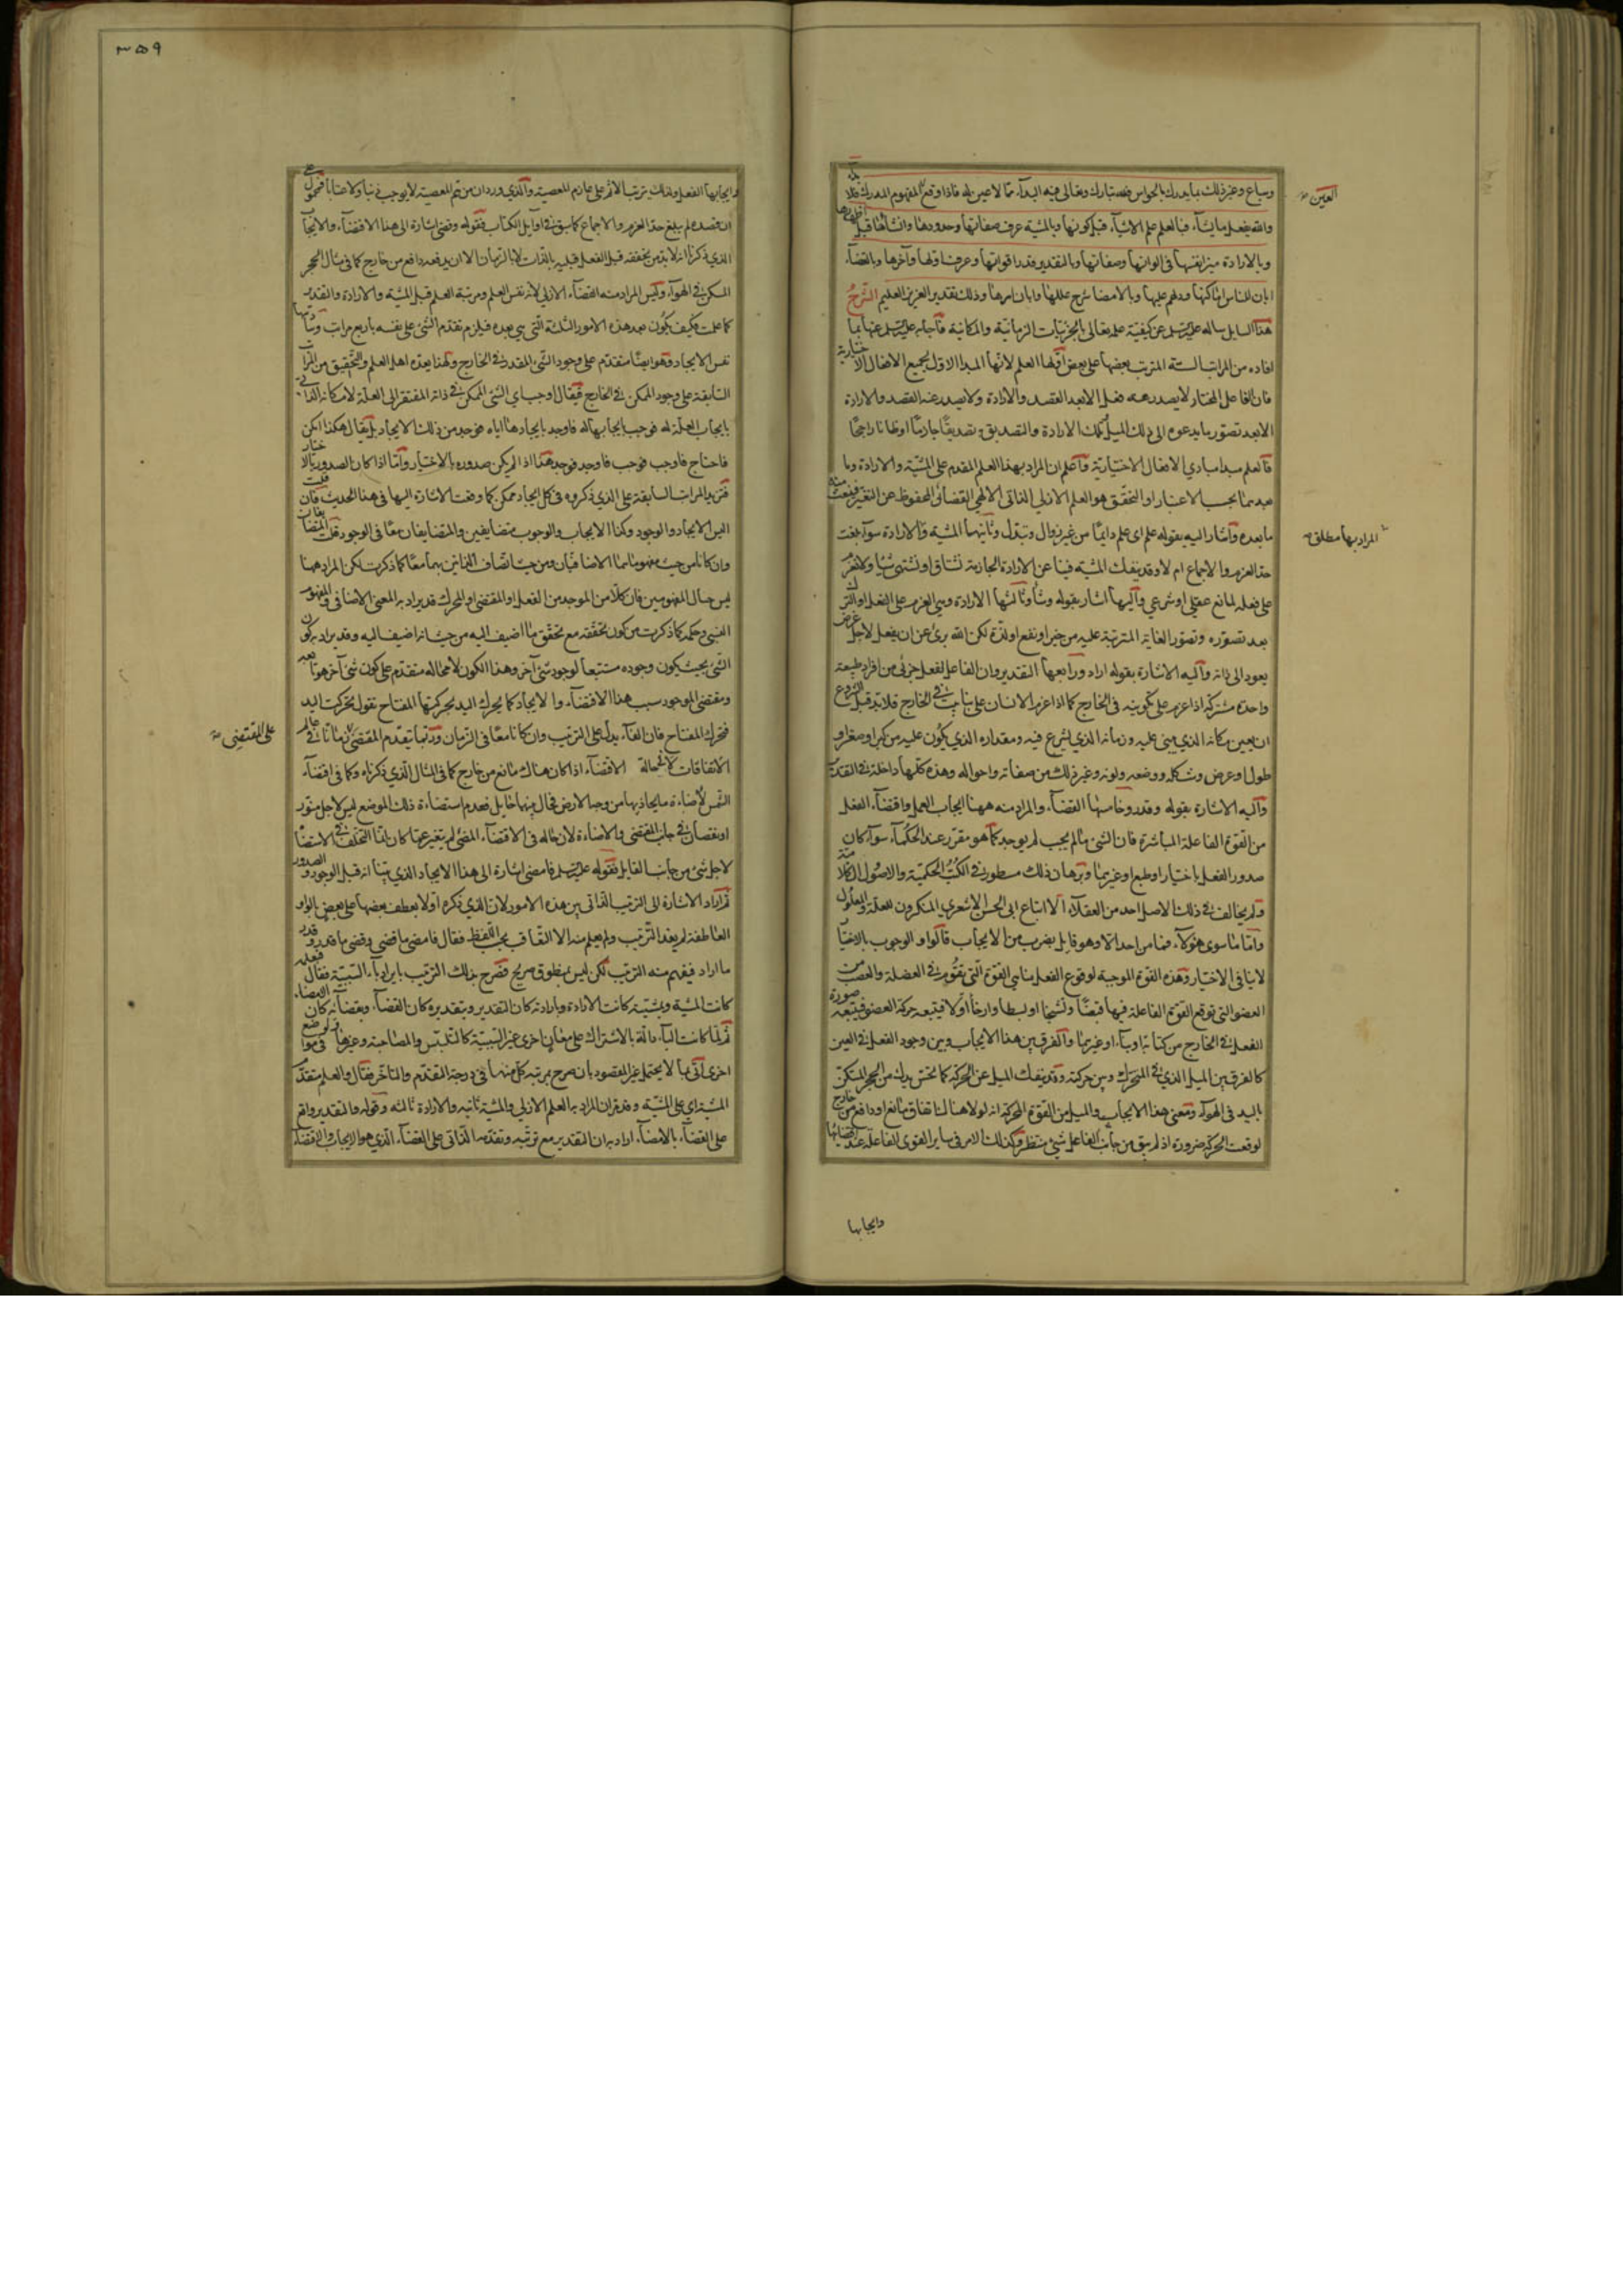 وسباع وغير ذلك مما يدرك بالحواس فلله تبارك وتعالى فيه البداء مما لا عين له فاذا وقع المفهوم المدرك فلا بداء
العين
والله يفعل ما يشاء فبالعلم علم الاشياء قبل كونها وبالمشية عرف صفاتها وحدودها وانشأها قبل اظهارها
وبالارادة ميز انفسها في الوانها وصفاتها وبالتقدير قدر اقواتها وعرف اولها وآخرها وبالقضاء
ابان للناس اماكنها ودلهم عليها وبالامضاء شرح عللها وابان امرها وذلك تقدير العزيز العليم الشرح
هذا السايل ساله عليه السلم عن كيفية علمه تعالى بالجزئيات الزمانية والمكانية فاجابه عليه السلم عنها بما
افاده من المراتب الستة المترتب بعضها على بعض اولها العلم لانها المبدا الاول لجميع الافعال الاختيارية
فان الفاعل المختار لا يصدر عنه فعل الا بعد القصد والارادة ولا يصدر عنه القصد والارادة
الا بعد تصور ما يدعوه الى ذلك الميل وتلك الارادة والتصديق به تصديقا جازما او ظنا راجحا
فالعلم مبدا مبادي الافعال الاختيارية واعلم ان المراد بهذا العلم المقدم على المشية والارادة وما
بعدهما بحسب الاعتبار او التحقق هو العلم الازلي الذاتي الالهي القضائي المحفوظ عن التغير فينبعث منه
ما بعده واشار اليه بقوله علم اي علم دايما من غير زوال وتبدل وثانيها المشية والارادة سواء بلغت
المراد بها مطلق
حد العزم والاجماع ام لا وقد ينفك المشية فينا عن الارادة الجازمة نشتاق او نشتهى شيئا ولا نعزم
على فعله لمانع عقلي او شرعي واليها اشار بقوله وشاء وثالثها الارادة وهي العزم على الفعل او الترك
بعد تصوره وتصور الغاية المترتبة عليه من خير او نفع او لذة لكن الله برئ عن ان يفعل لاجل غرض
يعود الى ذاته واليه الاشارة بقوله اراد ورابعها التقدير وان الفاعل لفعل جزئي من افراد طبيعة
واحدة مشتركة اذا عزم على تكوينه في الخارج كما اذا عزم الانسان على بناء بيت في الخارج فلا بد قبل الشروع
ان يعين مكانه الذي يبنى عليه وزمانه الذي يشرع فيه ومقداره الذي يكون عليه من كبر او صغر او
طول او عرض وشكله ووضعه ولونه وغير ذلك من صفاته واحواله وهذه كلها داخلة في التقدير
واليه الاشارة بقوله وقدر وخامسها القضاء والمراد منه ههنا ايجاب العمل واقتضاء الفعل
من القوة الفاعلة المباشرة فان الشئ ما لم يجب لم يوجد كما هو مقرر عند الحكماء سواء كان
صدور الفعل باختيار او طبع او غيرهما وبرهان ذلك مسطور في الكتب الحكمية والاصول الكلامية
ولم يخالف في ذلك الاصل احد من العقلاء الا اتباع ابى الحسن الاشعري المنكرون للعلة والمعلول
واما ما سوى هؤلاء فما من احد الا وهو قايل بضرب من الايجاب قالوا والوجوب بالاختيار
لا ينافي الاختيار وهذه القوة الموجبة لوقوع الفعل منا هي القوة التي تقوم في العضلة والعصب من
العضو التي توقع القوة الفاعلة فيها قبضا وتشنجا او بسطا وارخاء اولا فيتبعه حركة العضو فيتبعه صورة
الفعل في الخارج من كتابة او بناء او غيرهما والفرق بين هذا الايجاب وبين وجود الفعل في العين
كالفرق بين الميل الذي في المتحرك وبين حركته وقد ينفك الميل عن الحركة كما تحس يدك من الحجر المسكن
باليد في الهواء ومعنى هذا الايجاب والميل من القوة المحركة انه لولا هناك اتفاق مانع او دافع من خارج
لوقعت الحركة ضرورة اذ لم يبق من جانب الفاعل شئ منتظر وكذلك الامر في ساير القوى الفاعلة عند اقتضائها
وايجابها
٣٥٩
وايجابها الفعل ولذلك يترتب الاثم على عازم المعصية والذي ورد ان من هم المعصية لا يوجب ذنبا ولا عتابا فمحمول على
ان قصده لم يبلغ حد العزم والاجماع كما سبق في اوايل الكتاب فقوله وقضى اشارة الى هذا الاقتضاء والايجاب
الذي ذكرنا انه لا بد من تحققه قبل الفعل قبلية بالذات لا بالزمان الا ان يدفعه دافع من خارج كما في مثال الحجر
المسكن في الهواء وليس المراد منه القضاء الازلي لانه نفس العلم ومرتبة العلم قبل المشية والارادة والتقدير
كما علمت فكيف يكون بعد هذه الامور الثلثة التي هي بعده فيلزم تقدم الشئ على نفسه باربع مراتب وسادسها
نفس الايجاد وهو ايضا متقدم على وجود الشئ المقدر في الخارج ولهذا يعده اهل العلم والتحقيق من المراتب
السابقة على وجود الممكن في الخارج فيقال اوجب اي الشئ الممكن في ذاته المفتقر الى العلة لامكانه الذاتي
بايجاب العلة له فوجب بايجابها له فاوجد بايجادها اياه فوجد من ذلك الايجاد بل يقال هكذا امكن
فاحتاج فاوجب فوجب فاوجد فوجد هذا اذا لم يكن صدوره بالاختيار واما اذا كان الصدور بالاختيار
فتزيد المراتب السابقة على الذي ذكروه في كل ايجاد ممكن كما وقعت الاشارة اليها في هذا الحديث فان قلت
اليس الايجاد والوجود وكذا الايجاب والوجوب متضايفين والمتضايفان معا في الوجود قلت المتضايفان
وان كانا من حيث مفهوماهما الاضافيان ومن حيث اتصاف الذاتين بهما معا كما ذكرت لكن المراد ههنا
ليس حال المفهومين فان كلا من الموجد من الفعل او المقتضى او المحرك قد يراد به المعنى الاضافي والمفهوم
النسبي وحكمه كما ذكرت من كون تحققه مع تحقق ما اضيف اليه من حيث انه اضيف اليه وقد يراد به كون
الشئ بحيث يكون وجوده مستتبعا لوجود شئ آخر وهذا الكون لا محالة متقدم على كون شئ آخر هو تابعه
ومقتضى الموجود سبب هذا الاقتضاء والايجاد كما يحرك اليد بحركتها المفتاح تقول تحركت اليد
فتحرك المفتاح فان الفاء يدل على الترتيب وان كانا معا في الزمان وربما يتقدم المقتضى زمانا في عالم
على المقتضى
الاتفاقات لا محالة الاقتضاء اذا كان هناك مانع من خارج كما في المثال الذي ذكرناه وكما في اقتضاء
الشمس لاضاءة ما يحاذيها من وجه الارض في حال بينها حايل فعدم استضاءة ذلك الموضع ليس لاجل فتور
او نقصان في جانب المقتضي والاضاءة لان حاله في الاقتضاء المضئ لم يتغير عما كان انما التخلف في الاستضاء
لاجل شئ من جانب القابل فقوله عليه السلم فامضى اشارة الى هذا الايجاد الذي بينا انه قبل الوجود والصدور
ثم اراد الاشارة الى الترتيب الذاتي بين هذه الامور لان الذي ذكره اولا بعطف بعضها على بعض بالواو
العاطفة لم يفد الترتيب ولم يعلم منه الا التعاقب بحسب اللفظ فقال فامضى ما قضى وقضى ما قدر وقدر
ما اراد فيفهم منه الترتيب لكن ليس بمنطوق صريح فصرح بذلك الترتيب بايراد باء السببية فقال فبعلمه
كانت المشية وبمشيته كانت الارادة وبارادته كان التقدير وبتقديره كان القضاء وبقضائه كان الامضاء
ثم لما كانت الباء دالة بالاشتراك على معان اخرى غير السببية كالتلبس والمصاحبة وغيرها في مواضع
اخرى اتى بما لا يحتمل غير المقصود بان صرح بمرتبة كل منها في درجة المتقدم والمتاخر فقال والعلم متقدم
المشية اي على المشية وقد مر ان المراد به العلم الازلي والمشية ثانية والارادة ثالثة وقوله والتقدير واقع
على القضاء بالامضاء اراد به ان التقدير مع ترتبه وتقدمه الذاتي على القضاء الذي هو الايجاب والاقتضاء